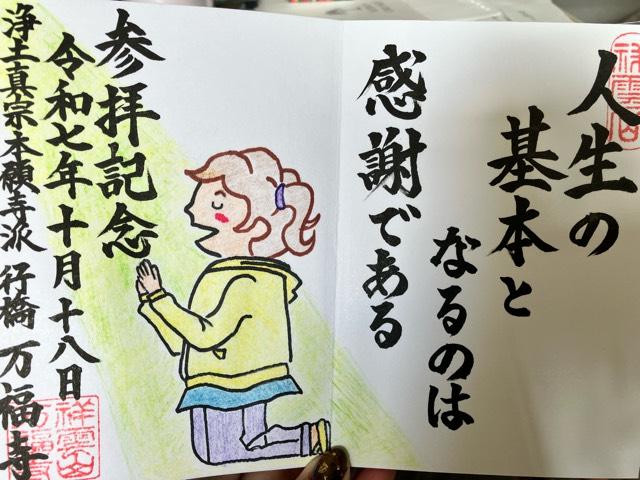 人生の
基本と
なるのは
感謝である
参拝記念
令和七年十月十八日
浄土真宗本願寺派 行橋 万福寺
祥雲山